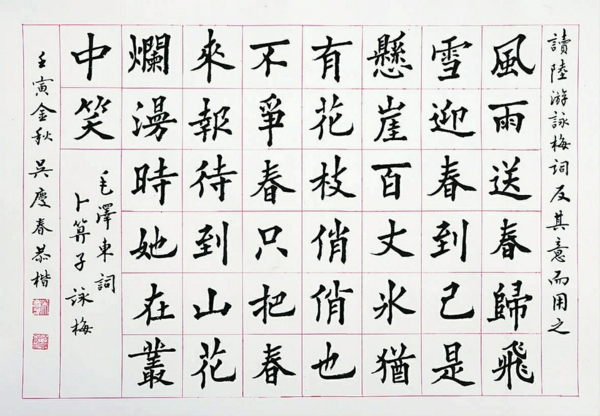 讀陸游詠梅詞反其意而用之
風雨送春歸飛
雪迎春到已是
懸崖百丈冰猶
有花枝俏俏也
不爭春只把春
來報待到山花
爛漫時她在叢
中笑
毛澤東詞
卜算子 詠梅
壬寅金秋 吳慶春恭楷